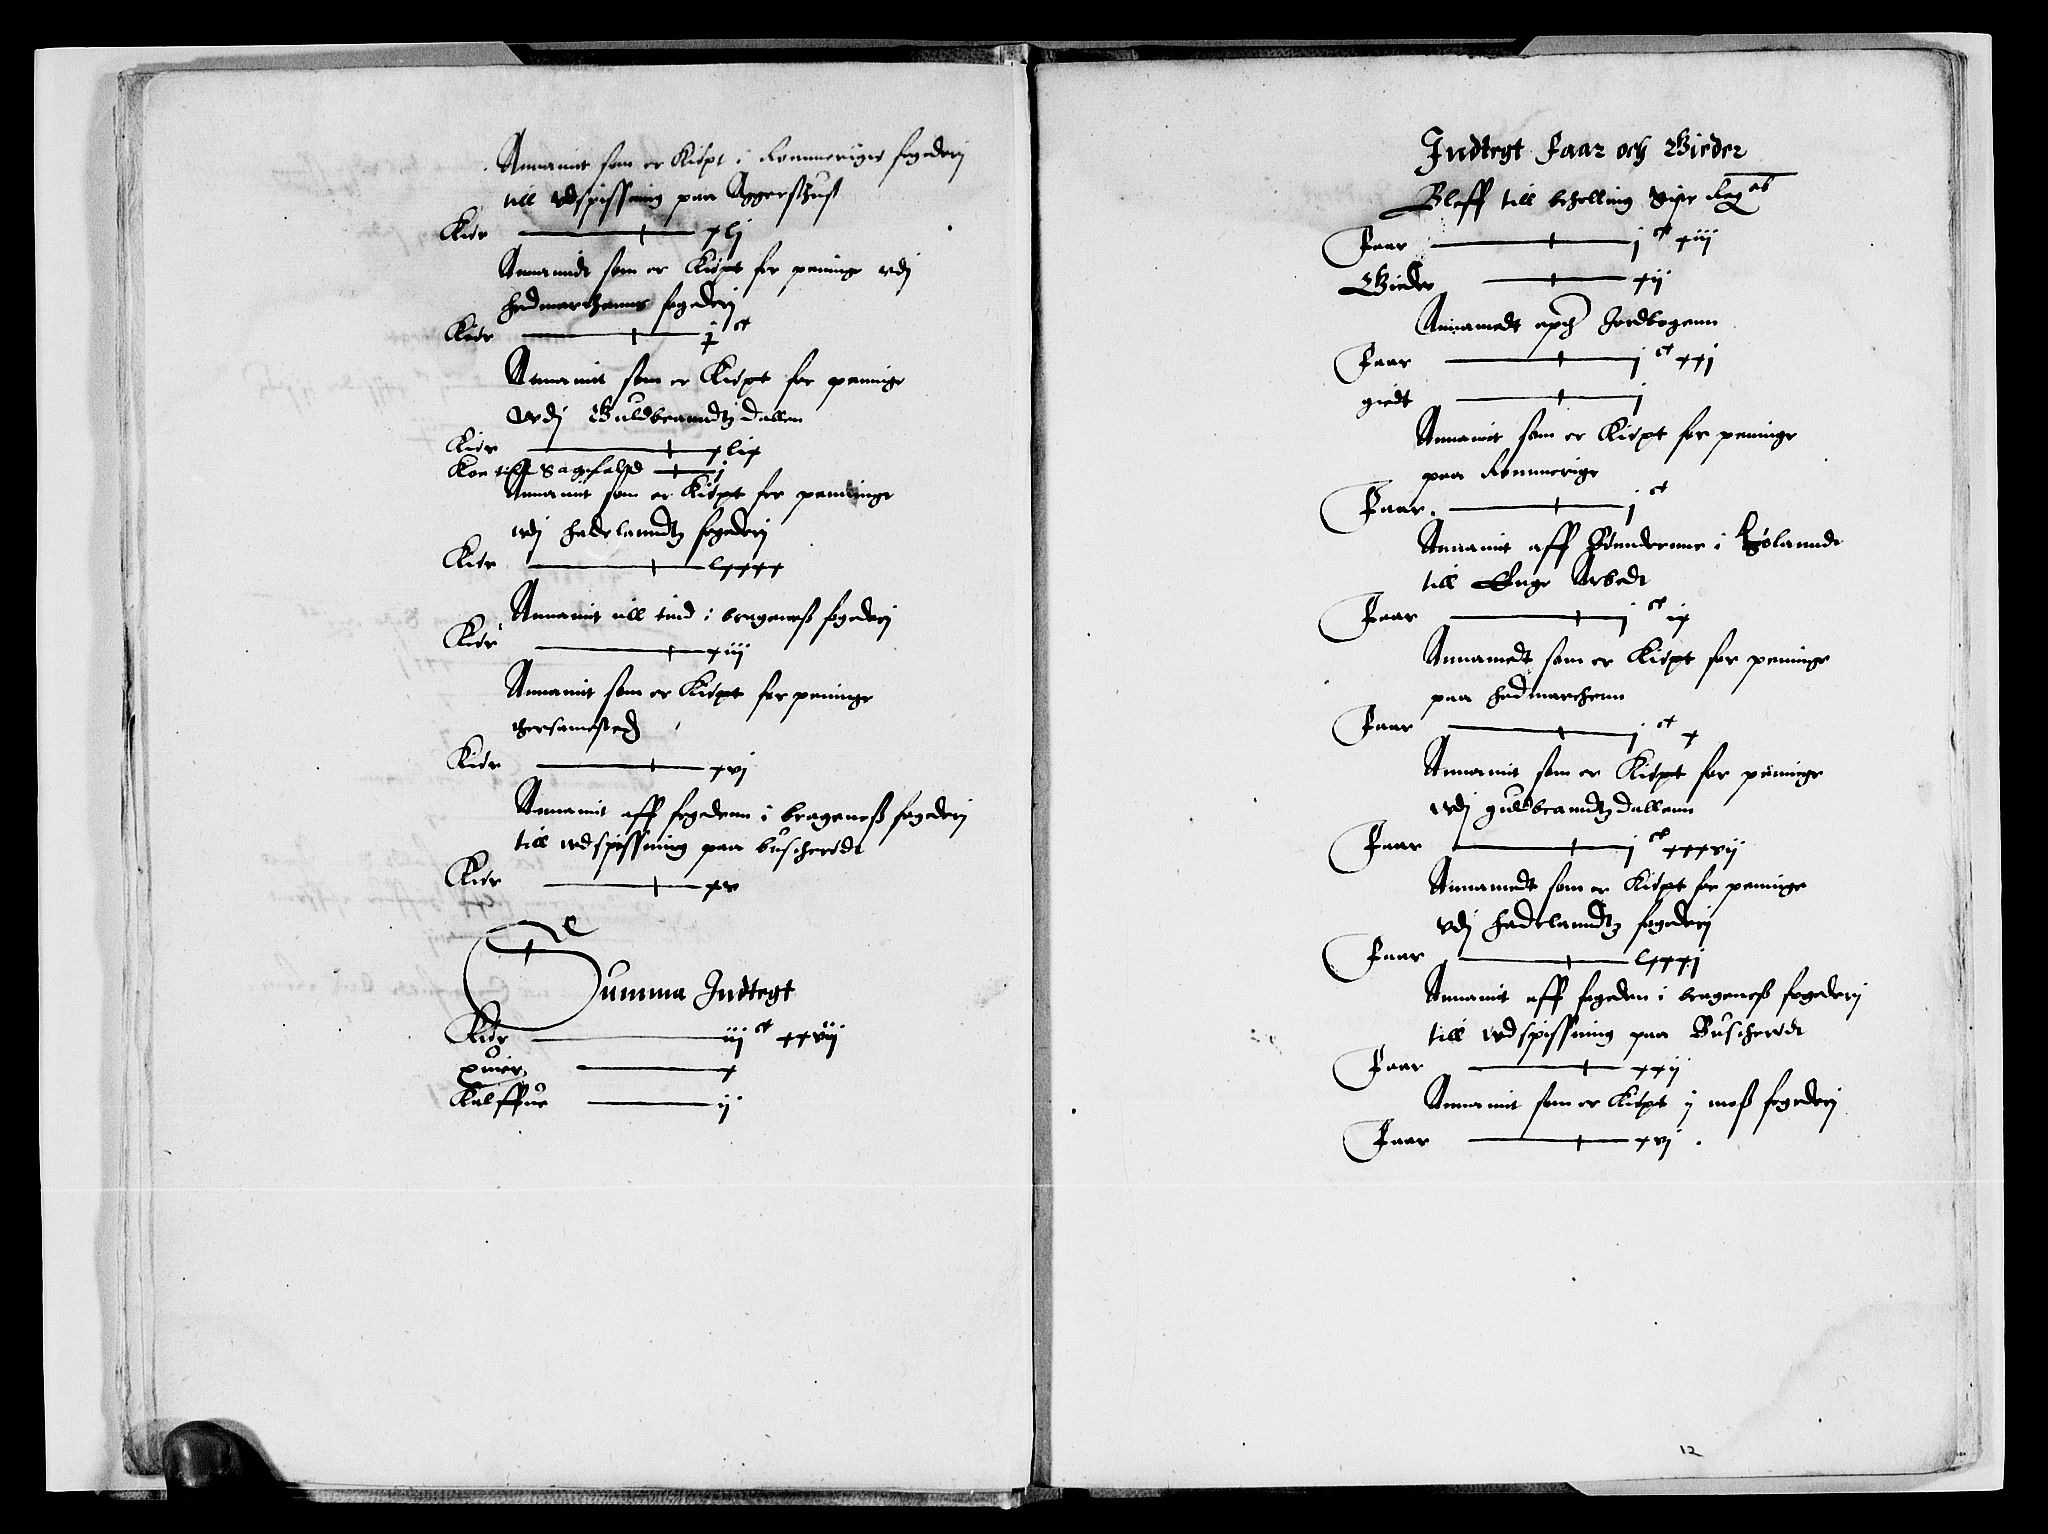 Annamit som er Kiøpt i Rommerigis fogederj
till vdspissning paa Aggershuß
Kiør xlj
Annamidt som er Kiøpt for peninge vdj
hedmarchenns fogederj
Kiør j ct
Annamit som er Kiøpt for peninge
wdj Guldbranndtz dallen
Kiør xlix
Koe till Sagefald j
Annamit som er Kiøpt for penninge
wdj hadelanndtz fogederj
Kiør lxxxx
Annamit till tiind i brageneß fogederj
Kiør xiij
Annamit som er Kiøpt for peninge
thersamested
Kiør xvj
Annamit aff fogedenn i brageneß fogederj
till wdspissning paa buscherødt
Kiør xv
Summa Indtegt
Kiør iij ct xxvij
quier x
Kalffue ij
Indtegt Faar och Gieder
Bleff till beholling sist Reg ab
Faar j ct xiij
Gieder xij
Annamedt epth Jordbogenn
Faar j ct xxj
giedt j
Annamit som er Kiøpt for peninge
paa Rommerige
Faar j ct
Annamit aff Bønnderne i Sølanndt
till Enge Arbedt
Faar j ct ix
Annamedt som er Kiøpt for peninge
paa hedmarchenn
Faar j ct x
Annamit som er Kiøpt for peninge
wdj guldbranndtz dallenn
Faar j ct xxxvij
Annamedt som er Kiøpt for peninge
vdj hadelanndtz fogederj
Faar lxxxj
Annamit aff fogeden i brageneß fogederj
till wdspissning paa Buscherødt
Faar xxij
Annamit som er Kiøpt ij moß fogederj
Faar xvj
12